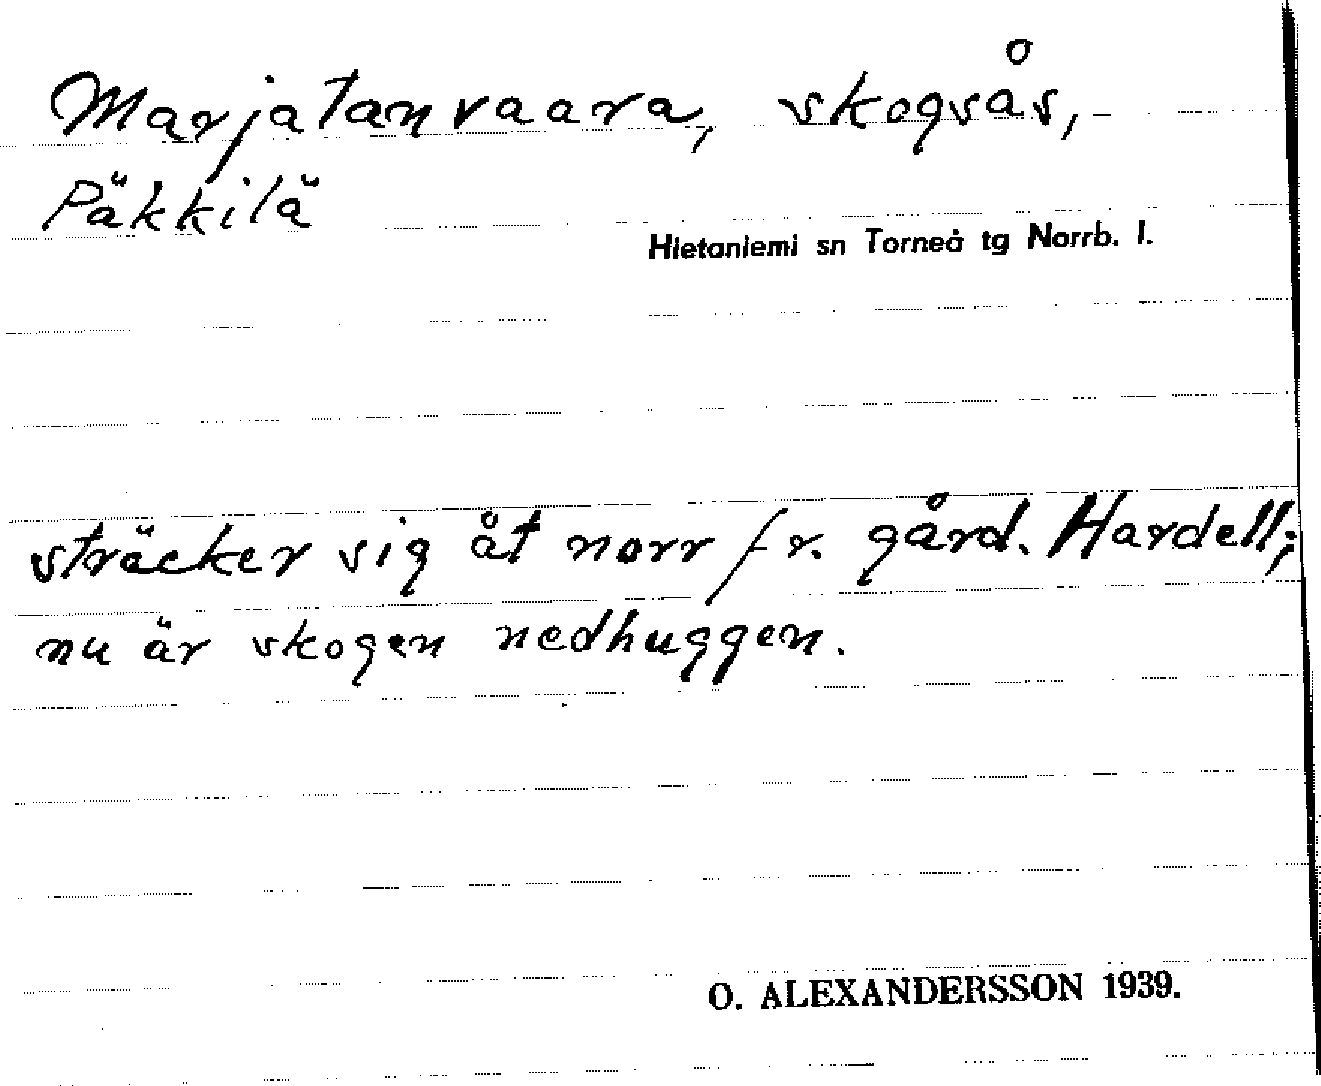 Marjatanvaara, skogsås,
Päkkilä
Hietaniemi sn Torneå tg Norrb. l.
sträcker sig åt norr fr. gård. Hardell;
nu är skogen nedhuggen.
O. ALEXANDERSSON 1939.